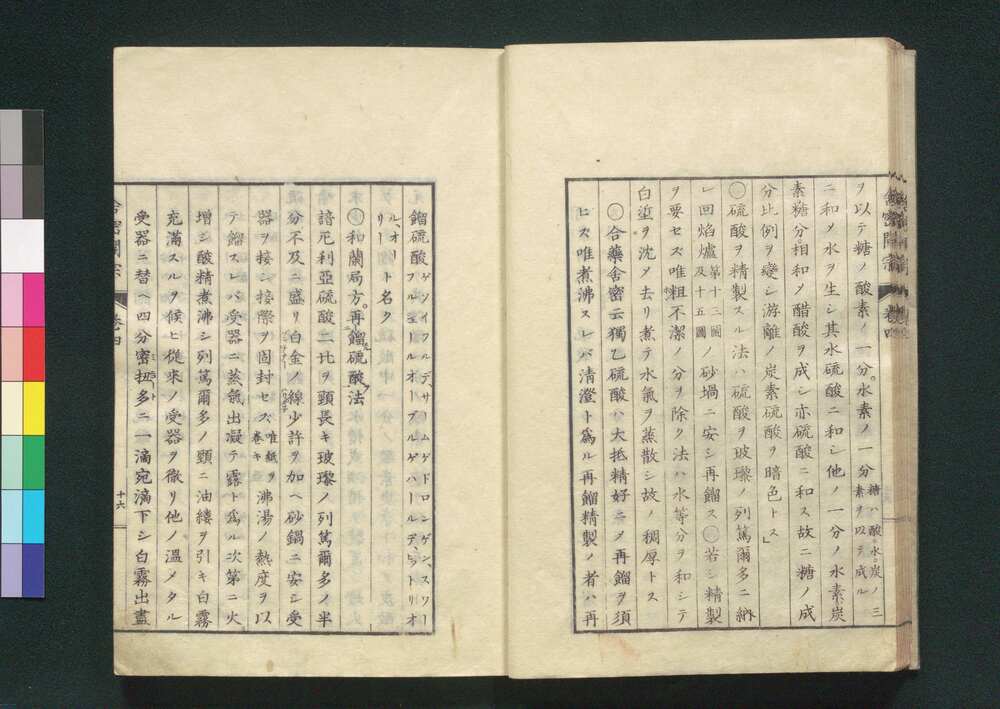 ヲ以テ糖ノ酸素ノ一分水素ノ一分 糖ハ酸水炭ノ三素ヲ以テ成ル
ニ和メ水ヲ生シ其水硫酸ニ和シ他ノ一分ノ水素炭
素糖分相和メ醋酸ヲ成シ亦硫酸ニ和ス故ニ糖ノ成
分比例ヲ變シ游離ノ炭素硫酸ヲ暗色トス」
硫酸ヲ精製スル法ハ硫酸ヲ玻瓈ノ列篤爾多ニ納
レ回焰爐 第十三圖及十五圖 ノ砂堝ニ安シ再餾ス 若シ精製
ヲ要セズ唯粗不潔ノ分ヲ除ク法ハ水等分ヲ和シテ
白堊ヲ沈メ去リ煮テ水氣ヲ蒸散シ故ノ稠厚トス
合藥舎密云獨乙硫酸ハ大抵精好 再餾ヲ須
ヒズ唯煮沸スレバ清澄ト為ル再餾精製ノ者ハ再
餾硫酸 ゲソイフルデ、サームゲドロンゲン、スワーフルシュール オーフルゲハールデ、ヒトリオールオリー ト名ク
和蘭局方 再餾硫酸法
諳厄利亞硫酸二 ヲ頸長キ玻瓈ノ列篤爾多ノ半
分不及ニ盛リ白金ノ線少許ヲ加ヘ砂鍋ニ安シ受
器ヲ接シ接際ヲ固封セズ 唯紙ヲ巻キ 沸湯ノ熱度ヲ以
テ餾スレバ受器ニ蒸氣出凝テ露ト為ル次第ニ火
增シ酸精煮沸シ列篤爾多ノ頸ニ油縷ヲ引キ白霧
充滿スルヲ候ヒ從來ノ受器ヲ徹リ他ノ溫メタル
受器ニ替ヘ四分密扭多ニ一滴宛滴下シ白霧出盡
舍密開宗 巻四
十六